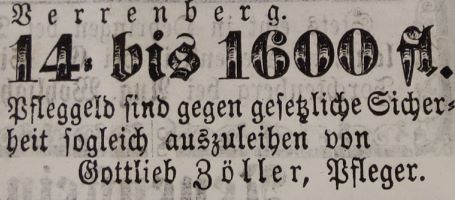 Verrenberg.
14. bis 1600 fl.
Pfleggeld sind gegen gesetzliche Sicher-
heit sogleich auszuleihen von
Gottlieb Zöller, Pfleger.